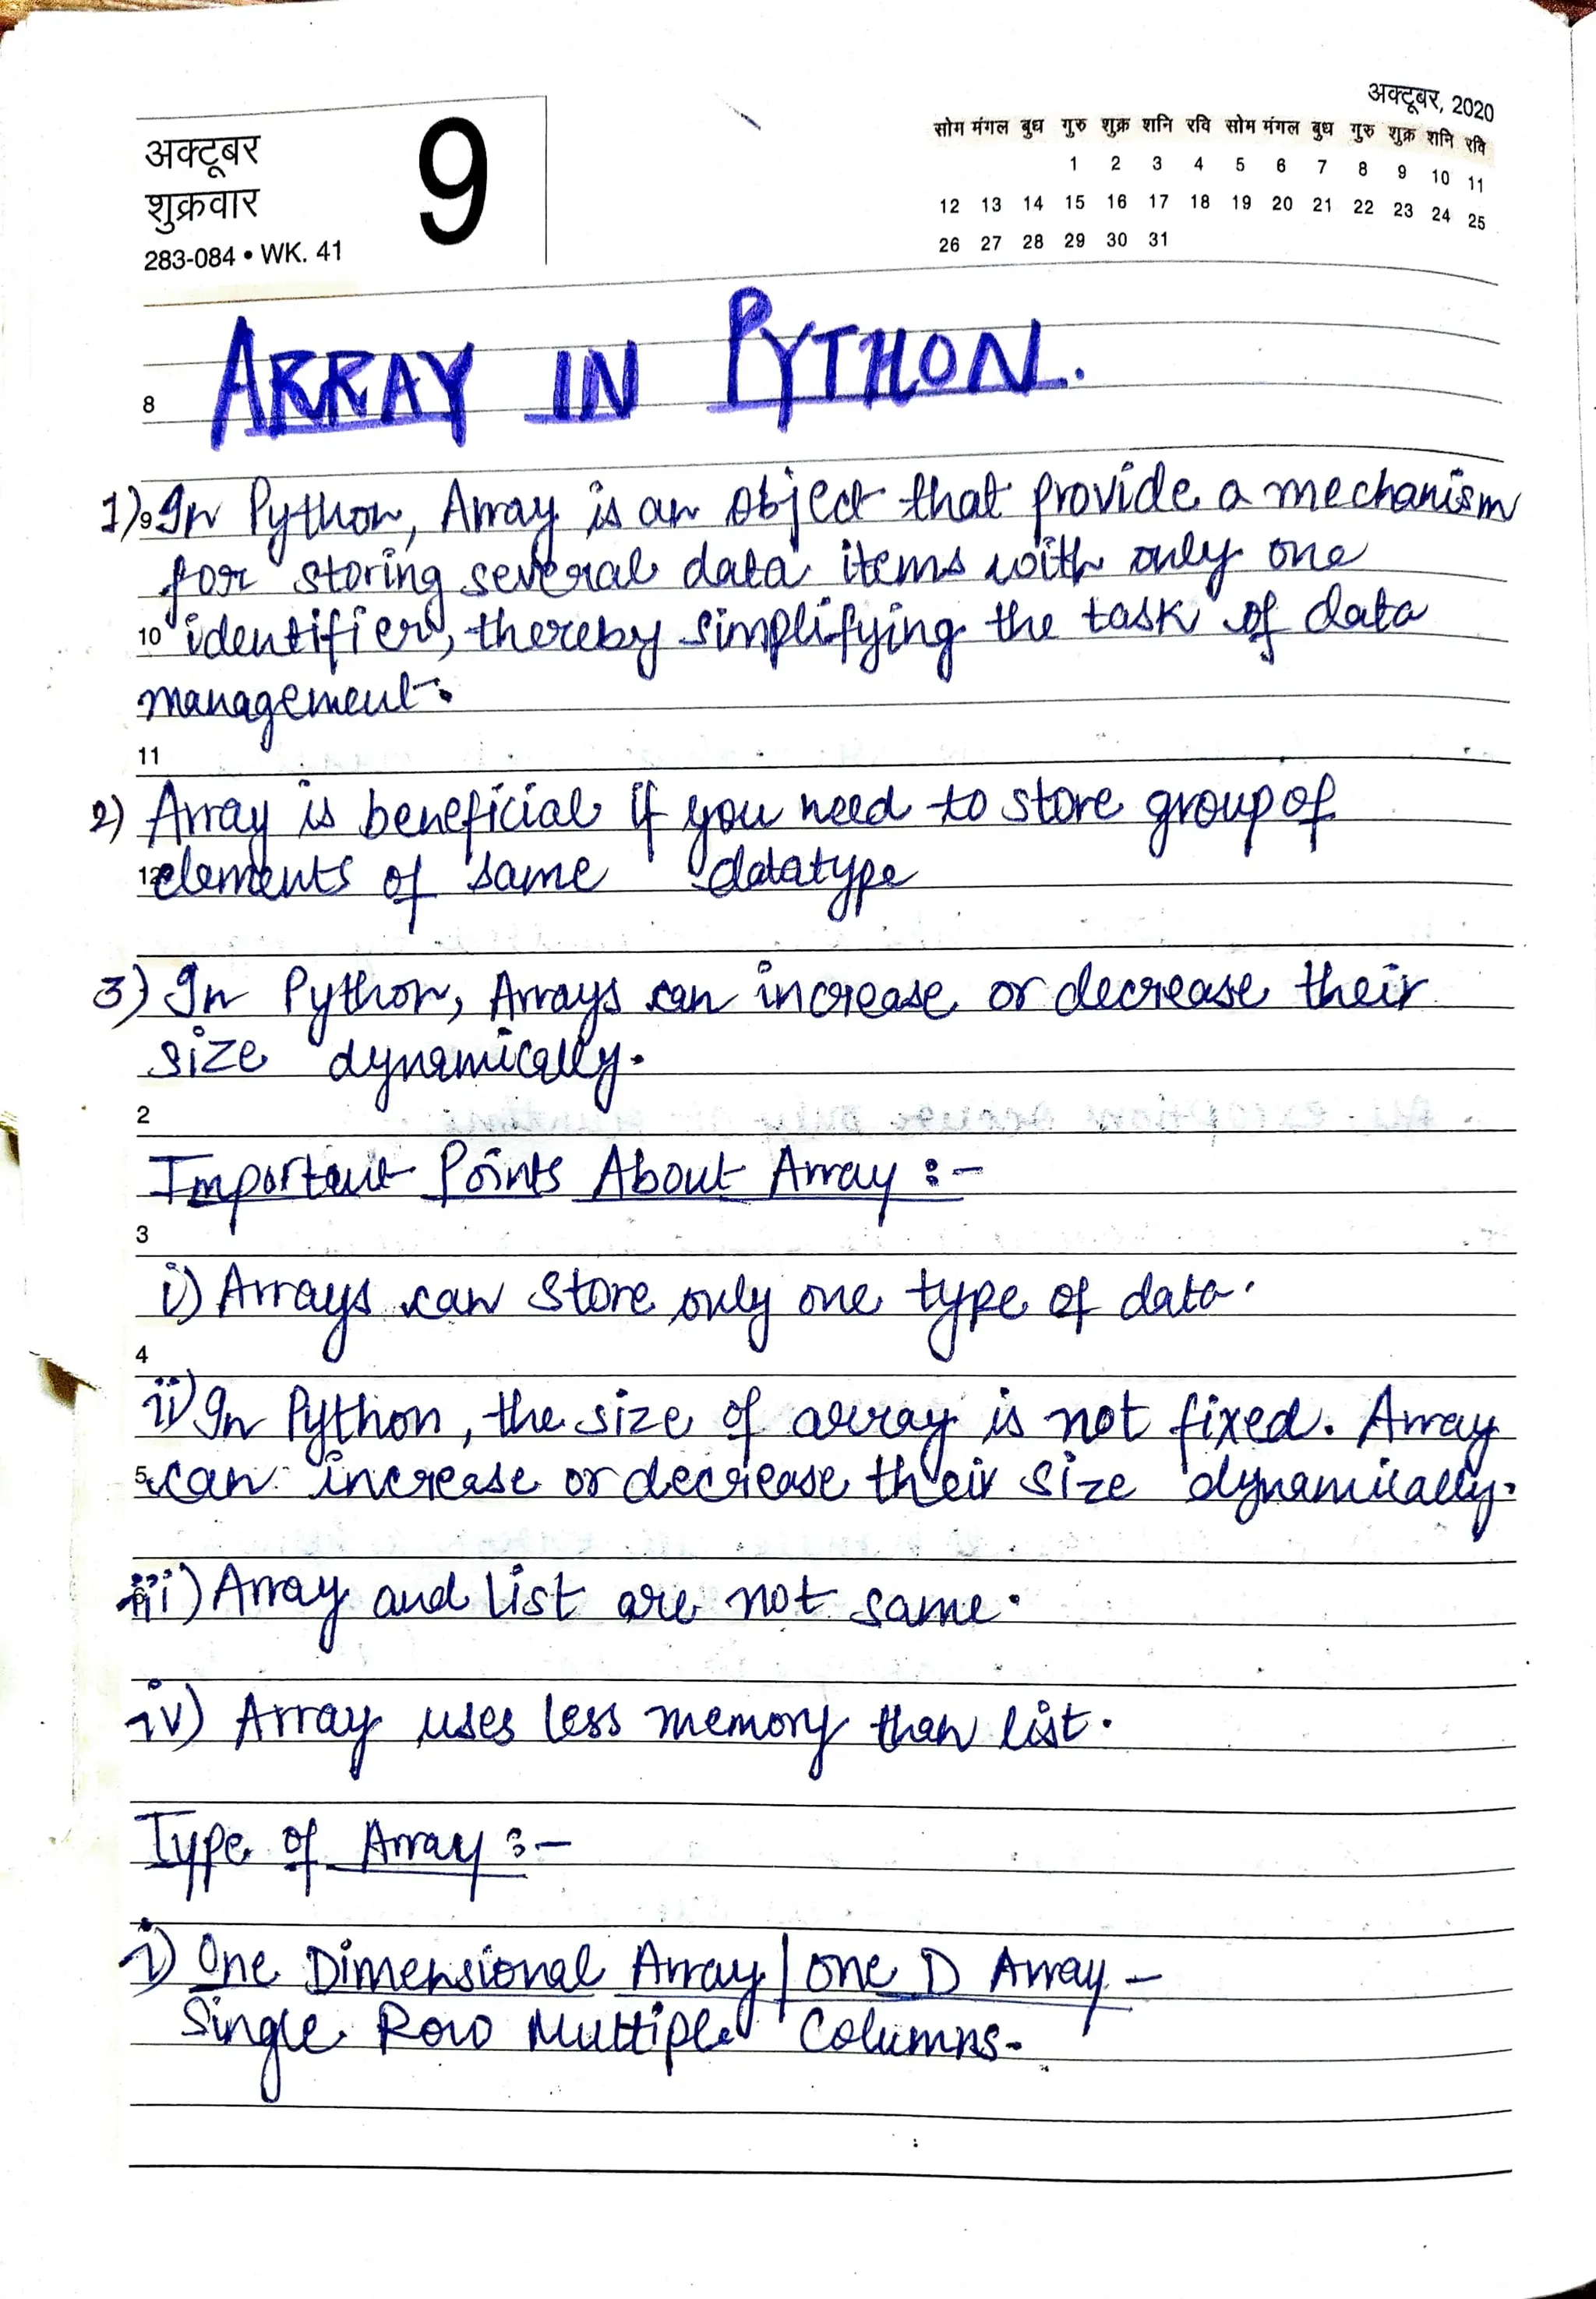 अक्टूबर
शुक्रवार
283-084 • WK. 41
9
अक्टूबर, 2020
सोम मंगल बुध गुरु शुक्र शनि रवि सोम मंगल बुध गुरु शुक्र शनि रवि
1 2 3 4 5 6 7 8 9 10 11
12 13 14 15 16 17 18 19 20 21 22 23 24 25
26 27 28 29 30 31
8 ARRAY IN PYTHON.
1) 9 In Python, Array is an object that provide a mechanism
for storing several data items with only one
10 identifier, thereby simplifying the task of data
management.
11
2) Array is beneficial if you need to store group of
12 elements of same datatype
3) In Python, Arrays can increase or decrease their
size dynamically.
2
Important Points About Array :-
3
i) Arrays can store only one type of data.
4
ii) In Python, the size of array is not fixed. Array
5 can increase or decrease their size dynamically.
iii) Array and list are not same.
iv) Array uses less memory than list.
Type of Array :-
i) One Dimensional Array | one D Array -
Single Row Multiple Columns.